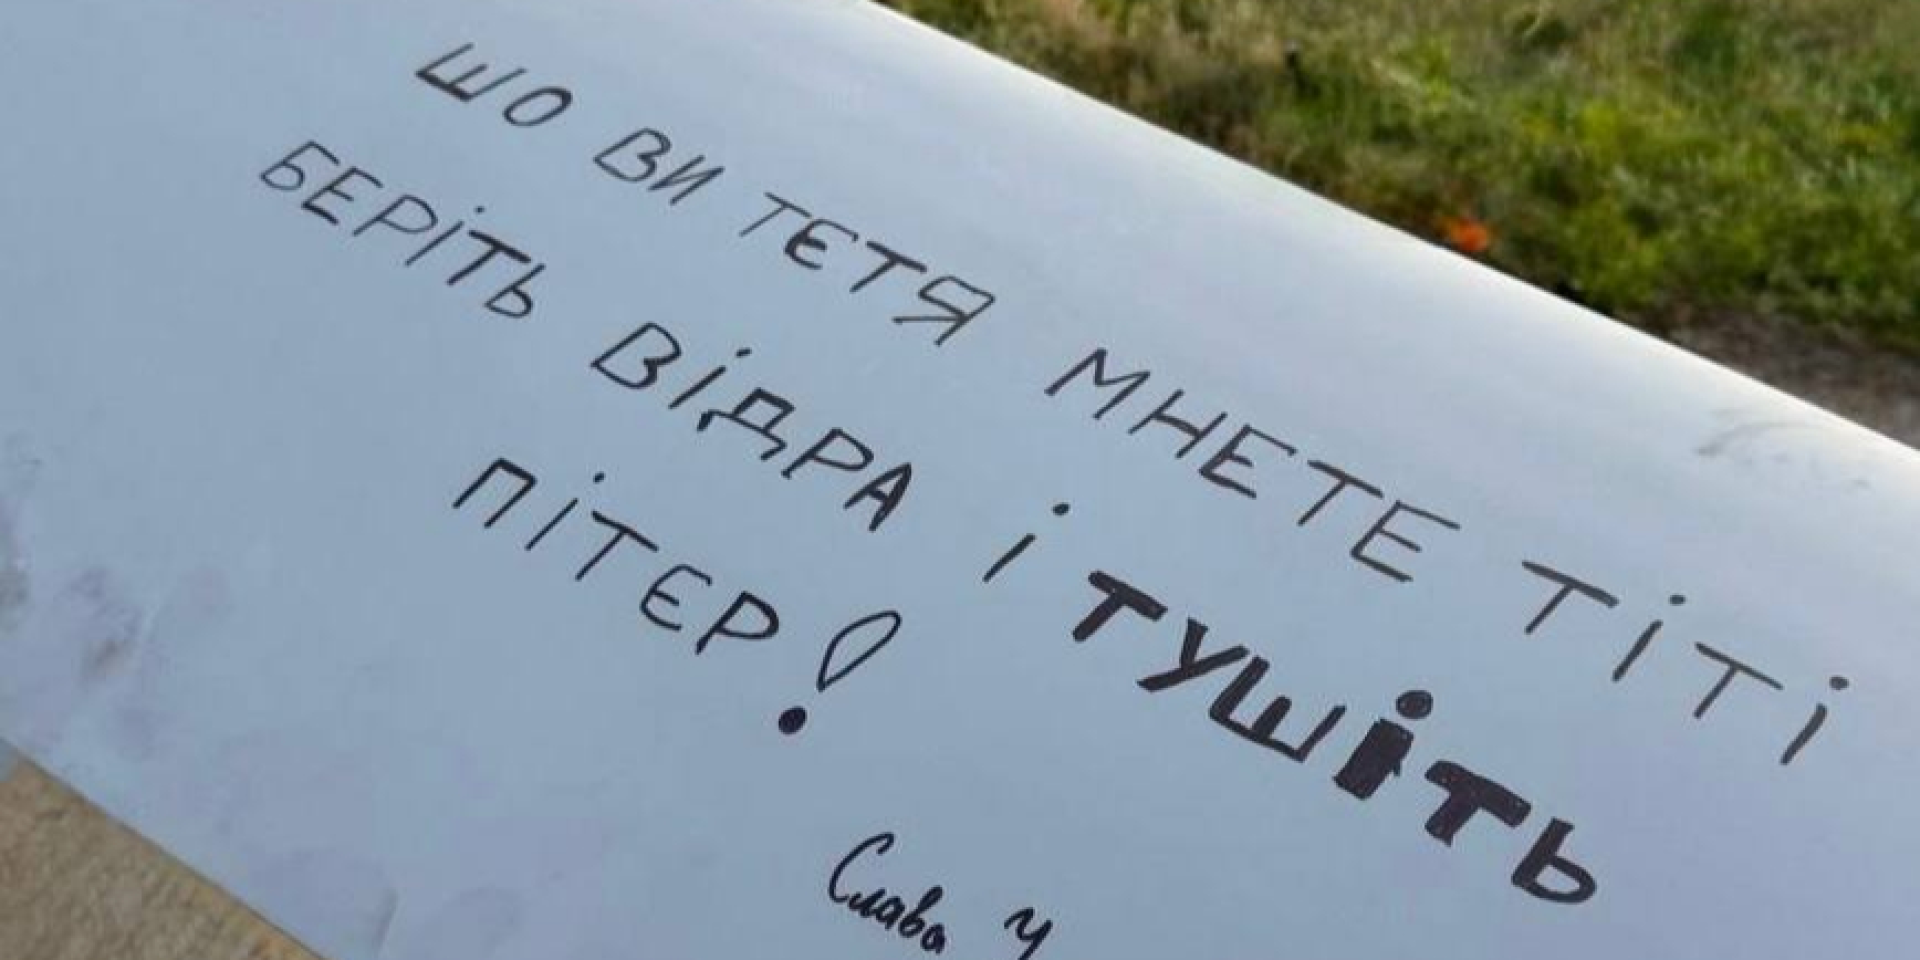 ШО ВИ ТЄТЯ МНЕТЕ ТІТІ
БЕРІТЬ ВІДРА І ТУШІТЬ
ПІТЄР!
Слава У